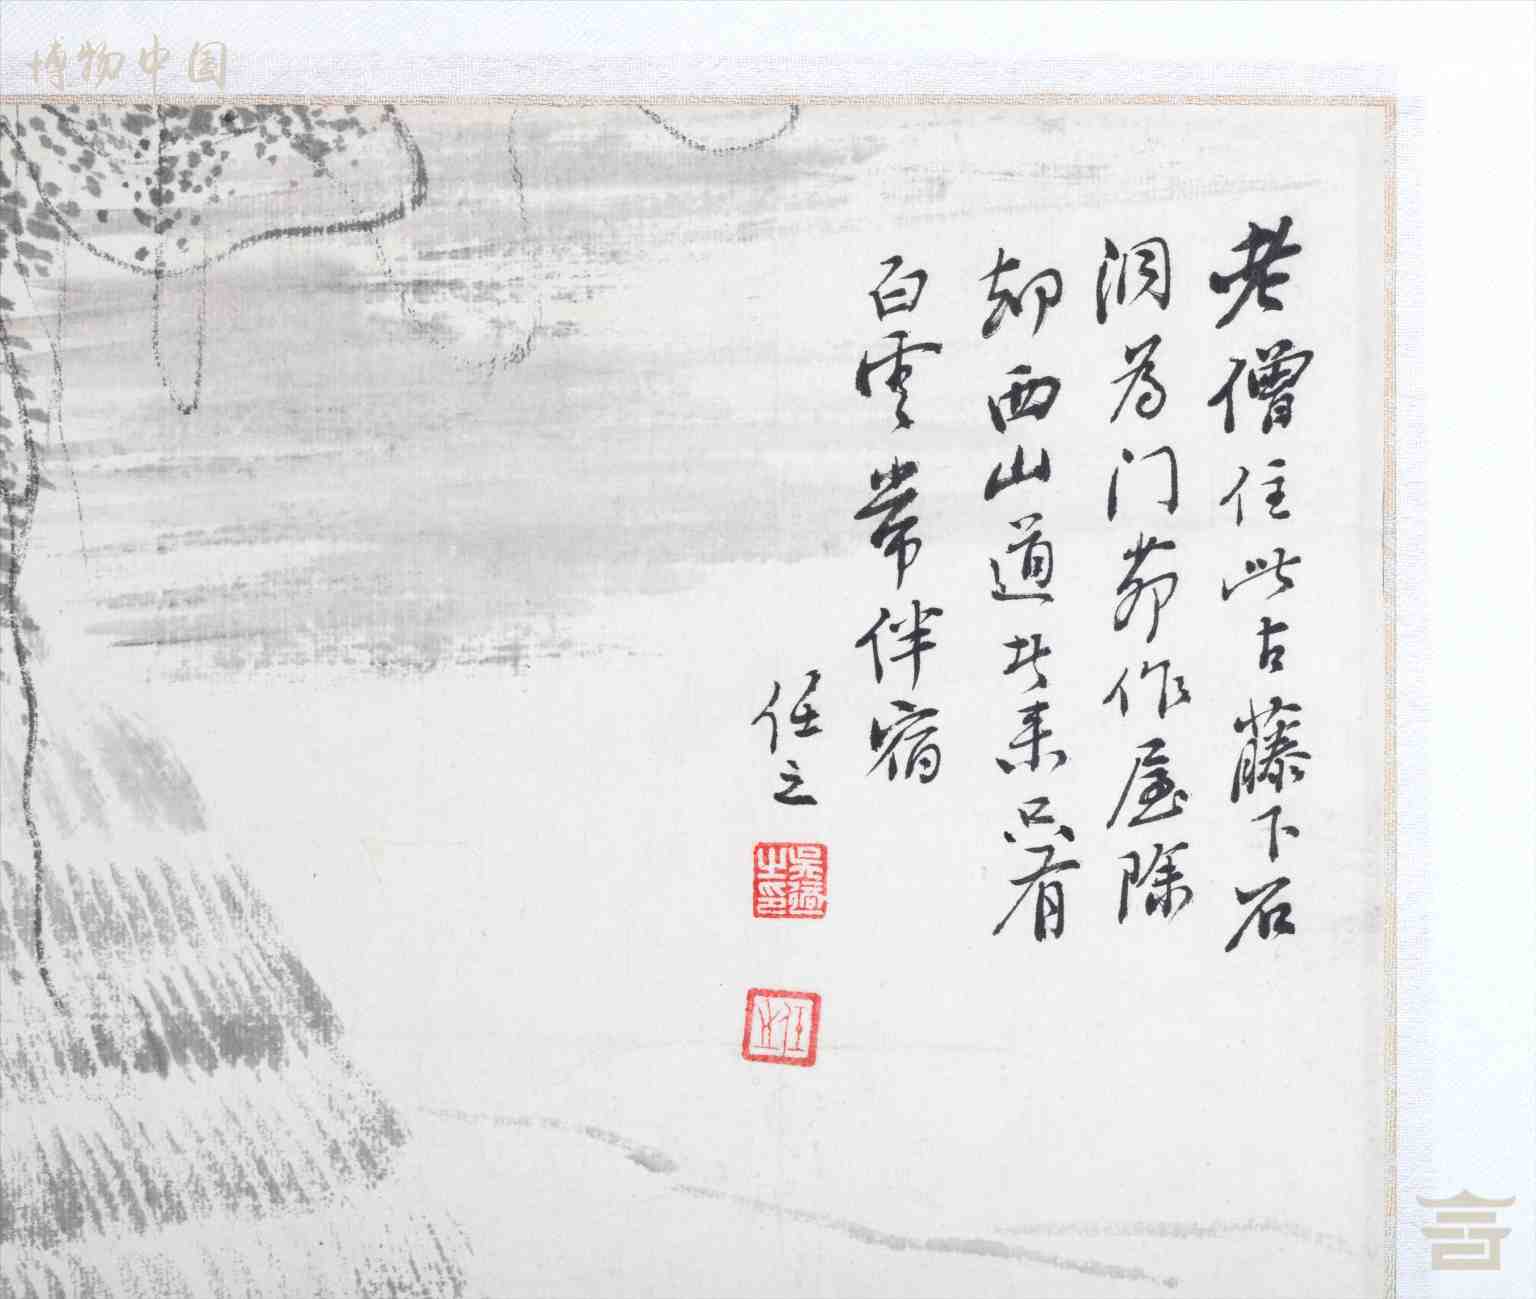 老僧住此古藤下石
洞为门茆作屋除
却西山道者来只有
白云常伴宿
任之
博物中国